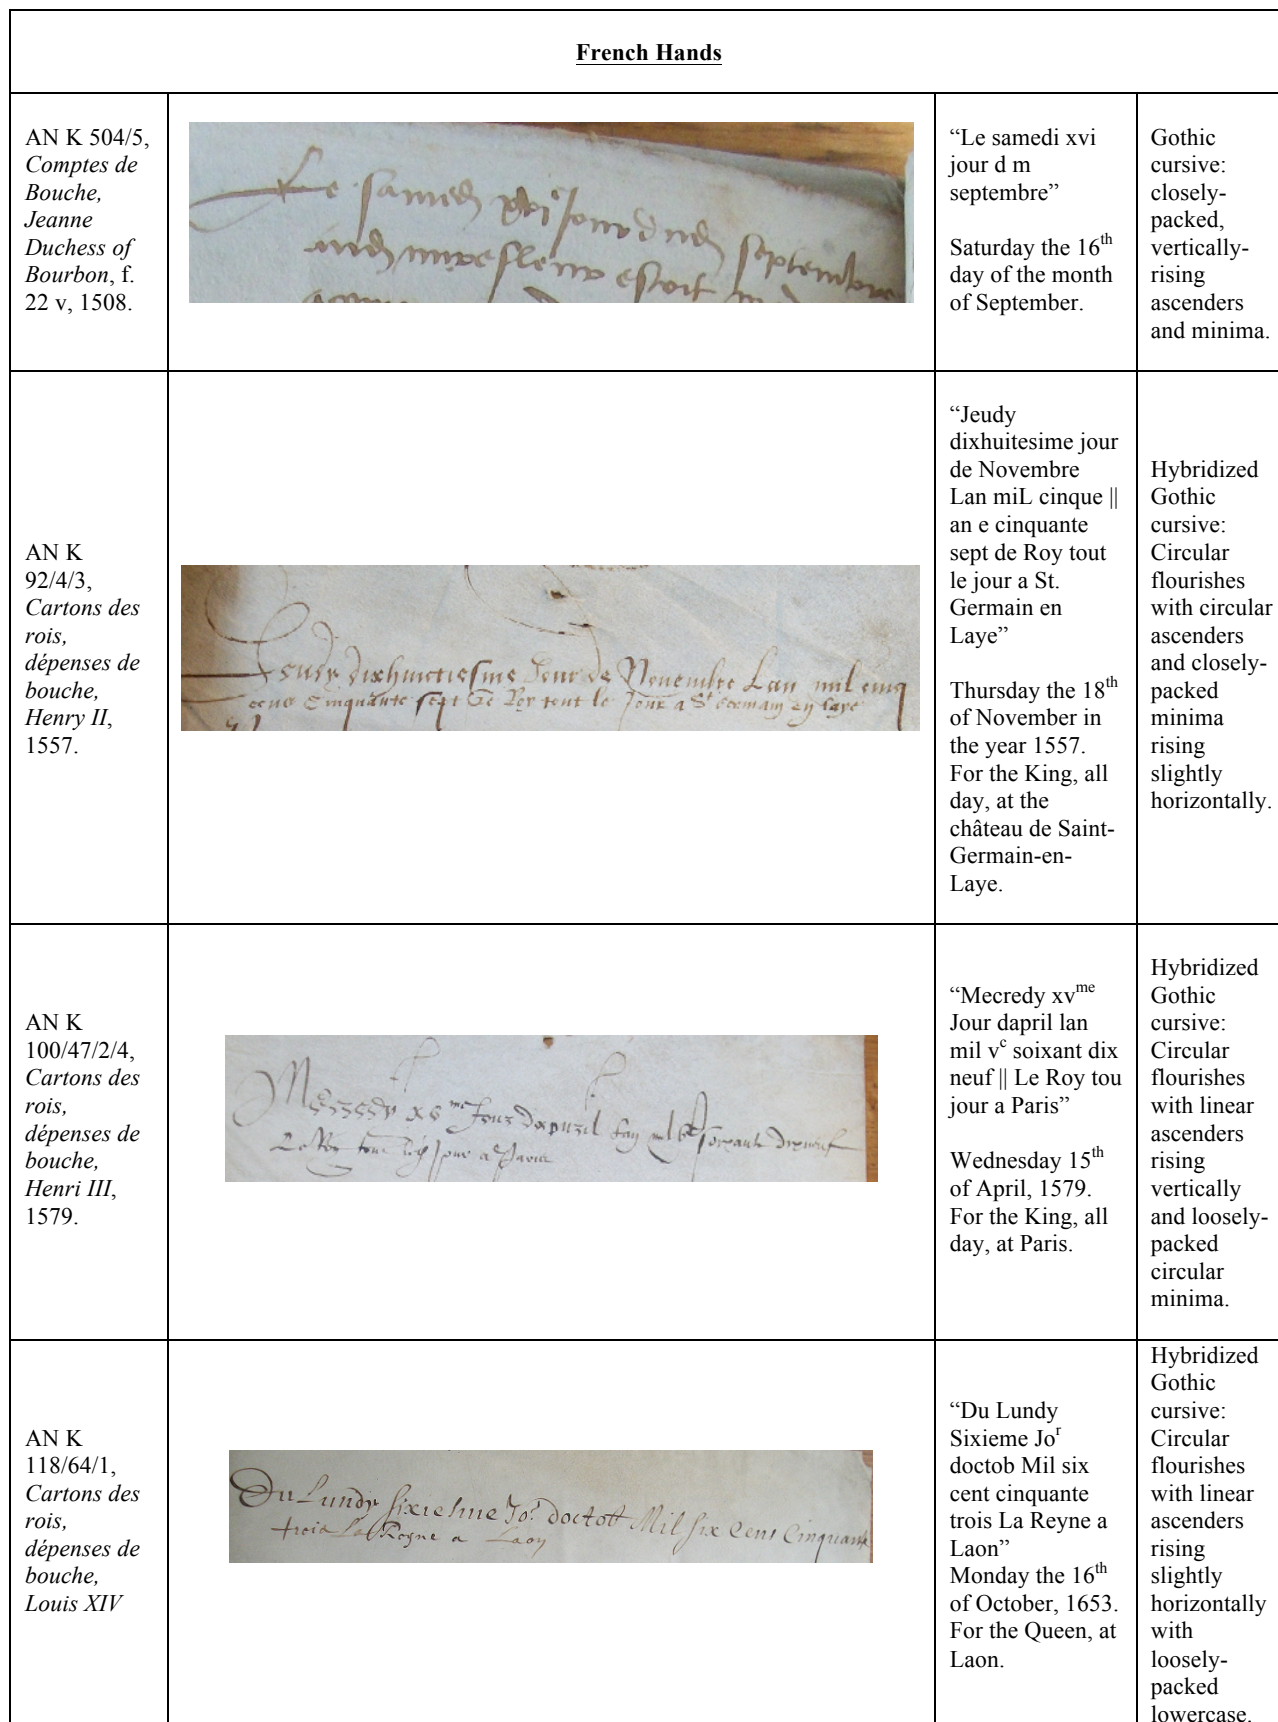 French Hands
AN K 504/5,
Comptes de
Bouche,
Jeanne
Duchess of
Bourbon, f.
22 v, 1508.
Le samedi xvi jour
septembre
estoit
“Le samedi xvi
jour d m
septembre”
Saturday the 16th
day of the month
of September.
Gothic
cursive:
closely-
packed,
vertically-
rising
ascenders
and minima.
AN K
92/4/3,
Cartons des
rois,
dépenses de
bouche,
Henry II,
1557.
Jeudy dixhuictiesme Jour de Novembre Lan mil cinq
cens Cinquante sept Le Roy tout le Jour a St germain en laye
“Jeudy
dixhuitesime jour
de Novembre
Lan miL cinque ||
an e cinquante
sept de Roy tout
le jour a St.
Germain en
Laye”
Thursday the 18th
of November in
the year 1557.
For the King, all
day, at the
château de Saint-
Germain-en-
Laye.
Hybridized
Gothic
cursive:
Circular
flourishes
with circular
ascenders
and closely-
packed
minima
rising
slightly
horizontally.
AN K
100/47/2/4,
Cartons des
rois,
dépenses de
bouche,
Henri III,
1579.
Mecredy xv me Jour dapvril lan mil vc soixante dixneuf
Le Roy tout Jour a Paris
“Mecredy xvme
Jour dapril lan
mil vc soixant dix
neuf || Le Roy tou
jour a Paris”
Wednesday 15th
of April, 1579.
For the King, all
day, at Paris.
Hybridized
Gothic
cursive:
Circular
flourishes
with linear
ascenders
rising
vertically
and loosely-
packed
circular
minima.
AN K
118/64/1,
Cartons des
rois,
dépenses de
bouche,
Louis XIV
Du Lundy sixiesme Jor doctob Mil six Cens Cinquante
trois La Reyne a Laon
“Du Lundy
Sixieme Jor
doctob Mil six
cent cinquante
trois La Reyne a
Laon”
Monday the 16th
of October, 1653.
For the Queen, at
Laon.
Hybridized
Gothic
cursive:
Circular
flourishes
with linear
ascenders
rising
slightly
horizontally
with
loosely-
packed
lowercase.